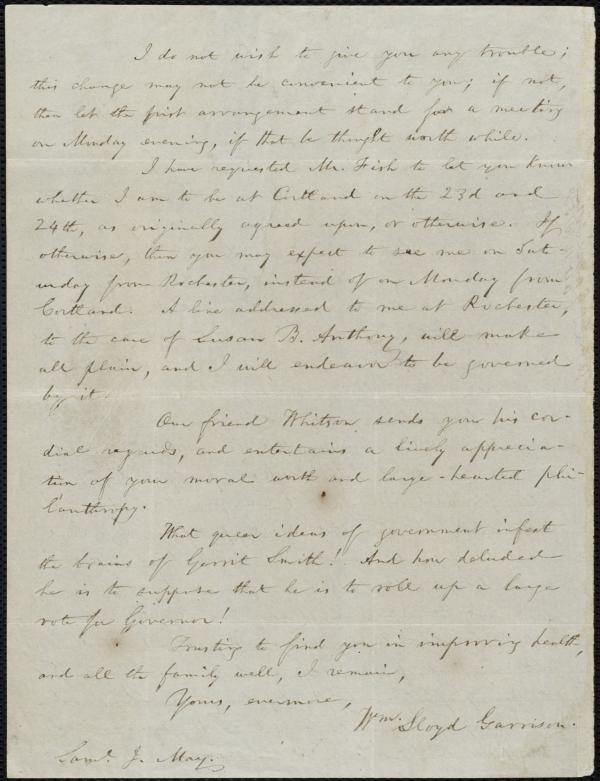 I do not wish to give you any trouble;
this change may not be convenient to you; if not,
then let the first arrangement stand for a meeting
on Monday evening, if that be thought worth while.
I have requested Mr. Fish to let you know
whether I am to be at Cortland on the 23d and
24th, as originally agreed upon, or otherwise. If
otherwise, then you may expect to see me on Sat-
urday from Rochester, instead of on Monday from
Cortland. A line addressed to me at Rochester,
to the care of Susan B. Anthony, will make
all plain, and I will endeavor to be governed
by it.
Our friend Whitson sends you his cor-
dial regards, and entertains a lively apprecia-
tion of your moral worth and large-hearted phi-
lanthropy.
What queer ideas of government infest
the brains of Gerrit Smith! And how deluded
he is to suppose that he is to roll up a large
vote for Governor!
Trusting to find you in improving health,
and all the family well, I remain,
Yours, evermore,
Wm. Lloyd Garrison.
Saml. J. May.